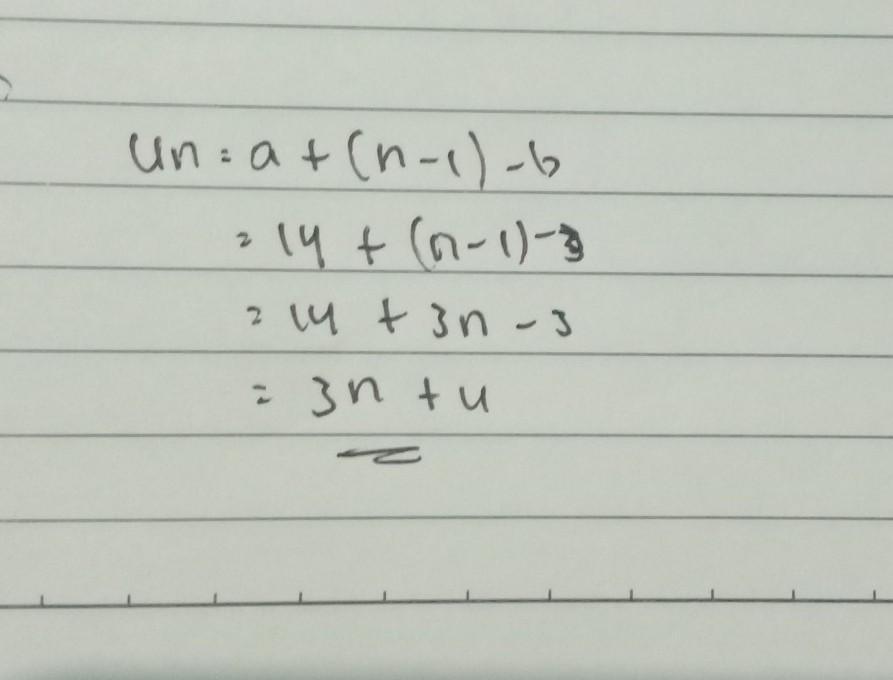 Un = a + (n-1) - b
= 14 + (n-1) - 3
= 14 + 3n - 3
= 3n + 4